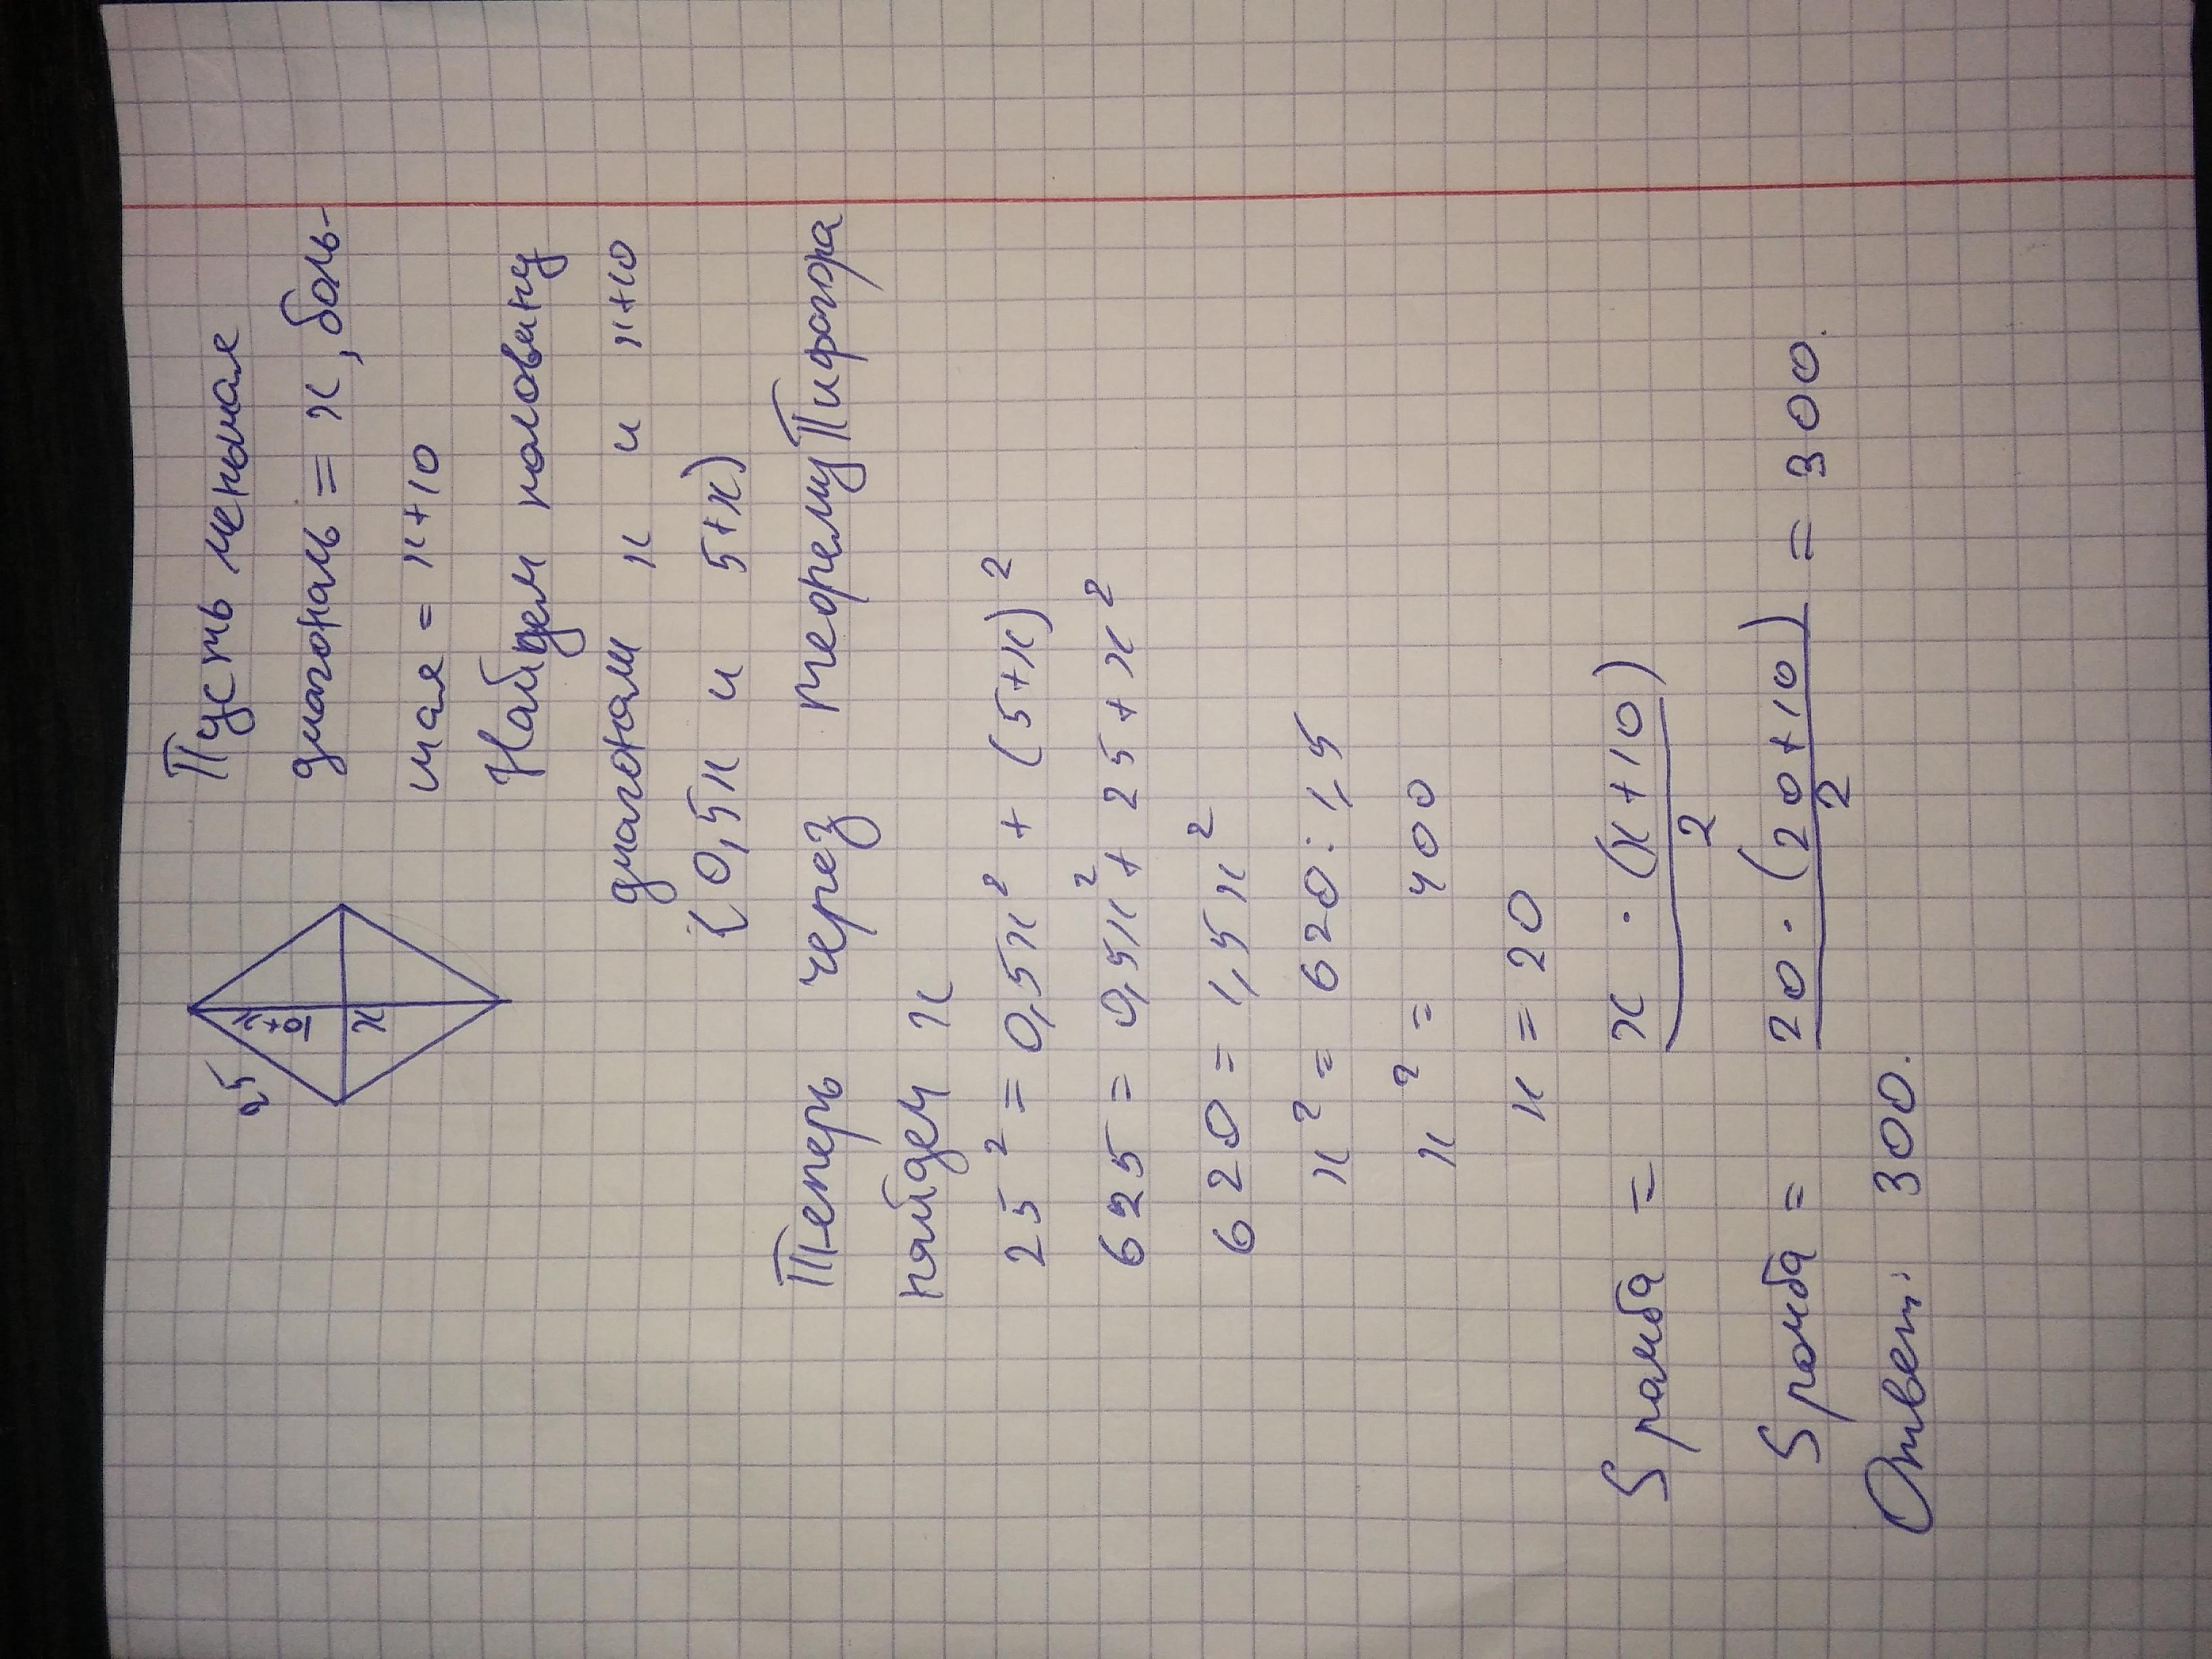 25
x+10
x
Пусть меньшая
диагональ = x, боль-
шая = x+10
Найдем половину
диагонали x и x+10
(0,5x и 5+x)
Теперь через теорему Пифагора
найдем x
25² = 0,5x² + (5+x)²
625 = 0,5x² + 25 + x²
620 = 1,5x²
x² = 620 : 1,5
x² = 400
x = 20
S ромба = x · (x+10) / 2
S ромба = 20 · (20+10) / 2 = 300.
Ответ: 300.